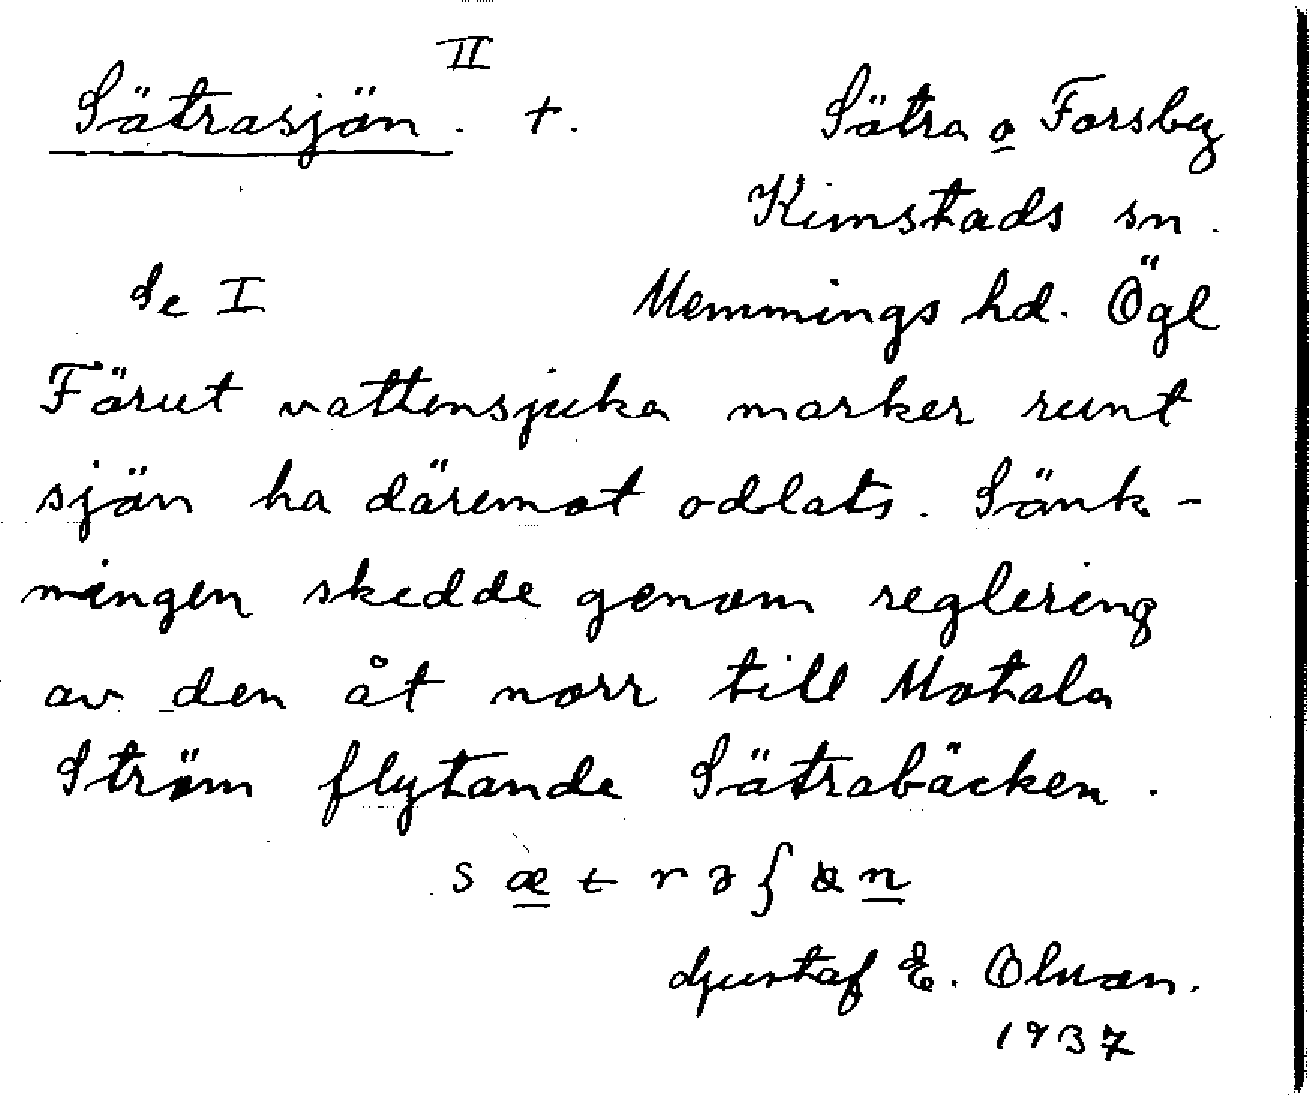 II
Sätrasjön. +. Sätra o Forsby
Kimstads sn.
Se I Memmings hd. Ögl
Förut vattensjuka marker runt
sjön ha däremot odlats. Sänk-
ningen skedde genom reglering
av den åt norr till Motala
Ström flytande Sätrabäcken.
Gustaf E. Olson.
1937